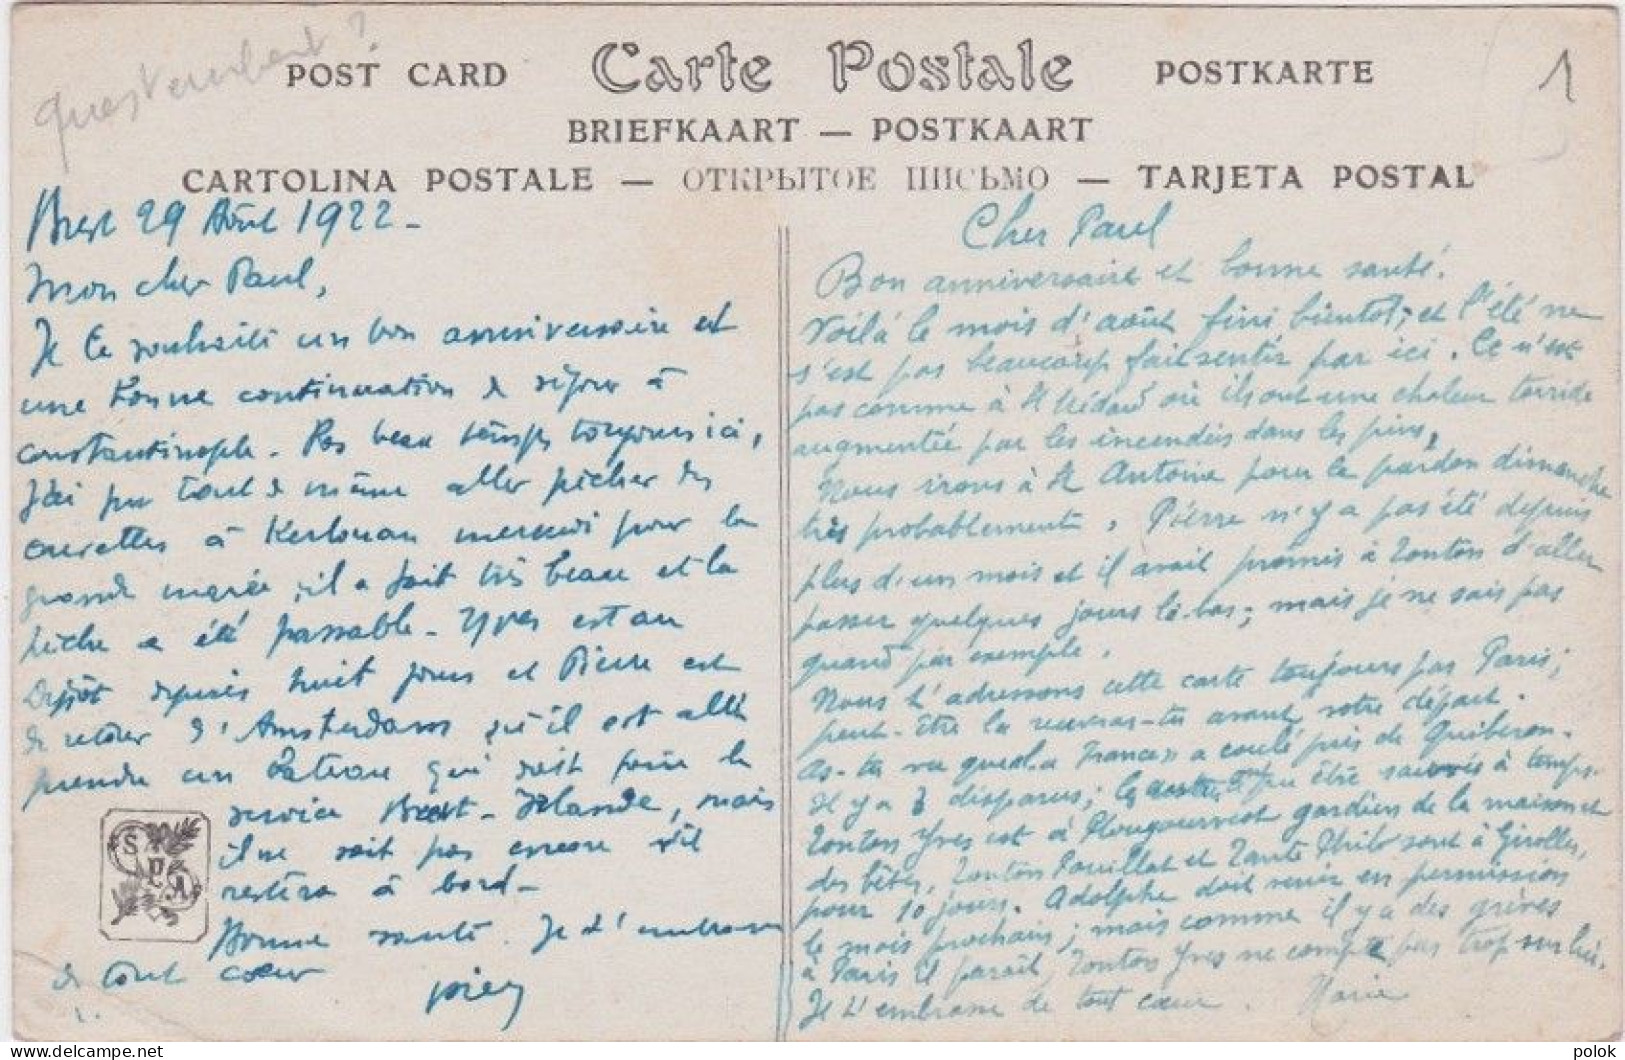 POST CARD Carte Postale POSTKARTE
1
BRIEFKAART — POSTKAART
CARTOLINA POSTALE — ОТКРЫТОЕ ПИСЬМО — TARJETA POSTAL
Brest 29 Août 1922 -
Mon cher Paul,
Je te souhaite un bon anniversaire et
une bonne continuation de séjour à
Constantinople. Pas beau temps toujours ici,
j'ai pu tout de même aller pêcher des
crevettes à Kerlouan mercredi pour la
grande marée, il a fait très beau et la
pêche a été passable - Yves est au
Dépôt depuis huit jours et Pierre est
de retour d'Amsterdam qu'il est allé
prendre un bateau qui doit faire le
service Brest - Irlande, mais
il ne sait pas encore s'il
restera à bord -
Bonne santé. Je t'embrasse
de tout cœur
SPA
Cher Paul
Bon anniversaire et bonne santé.
Voilà le mois d'août fini bientôt, et l'été ne
s'est pas beaucoup fait sentir par ici. Ce n'est
pas comme à St Médard où ils ont une chaleur torride
augmentée par les incendies dans les pins,
Nous irons à St Antoine pour le pardon dimanche
très probablement. Pierre n'y a pas été depuis
plus d'un mois et il avait promis à Tonton d'aller
passer quelques jours là-bas; mais je ne sais pas
quand par exemple.
Nous t'adressons cette carte toujours pas Paris;
peut-être la recevras-tu avant votre départ.
As-tu vu que la "France" a coulé près de Quiberon.
Il y a 3 disparus; les autres ont pu être sauvés à temps.
Tonton Yves est à Plougourvest gardien de la maison et
des bêtes, Tonton Pouillat et Tante Philo sont à Girolles,
pour 10 jours. Adolphe doit venir en permission
le mois prochain; mais comme il y a des grèves
à Paris il parait, Tonton Yves ne compte pas trop sur lui.
Je t'embrasse de tout cœur. Marie
delcampe.net
polok